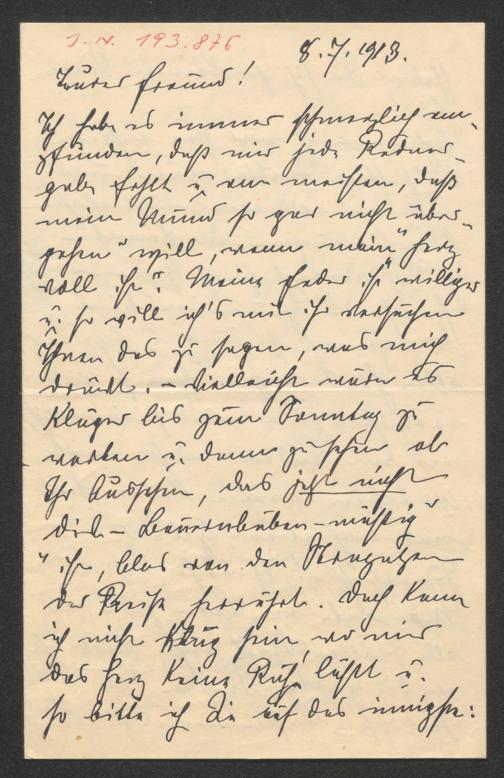 J. N. 193.876
8.7.1913.
Teurer Freund!
Ich habe es immer schmerzlich em-
pfunden, daß mir jede Redner-
gabe fehlt u. am meisten, daß
mein Mund so gar nicht „über-
gehen" will, wenn mein „Herz
voll ist". Meine Feder ist williger
u. so will ich's mit ihr versuchen
Ihnen das zu sagen, was mich
drückt. – Vielleicht wäre es
klüger bis zum Sonntag zu
warten u. dann zu sehen ob
Ihr Aussehen, das jetzt nicht
dick – Bauernbuben –
ist, blos von den Strapazen
der Reise herrührt. Doch kann
ich nicht klug sein, wo mir
das Herz keine Ruh' läßt u.
so bitte ich Sie auf das innigste: